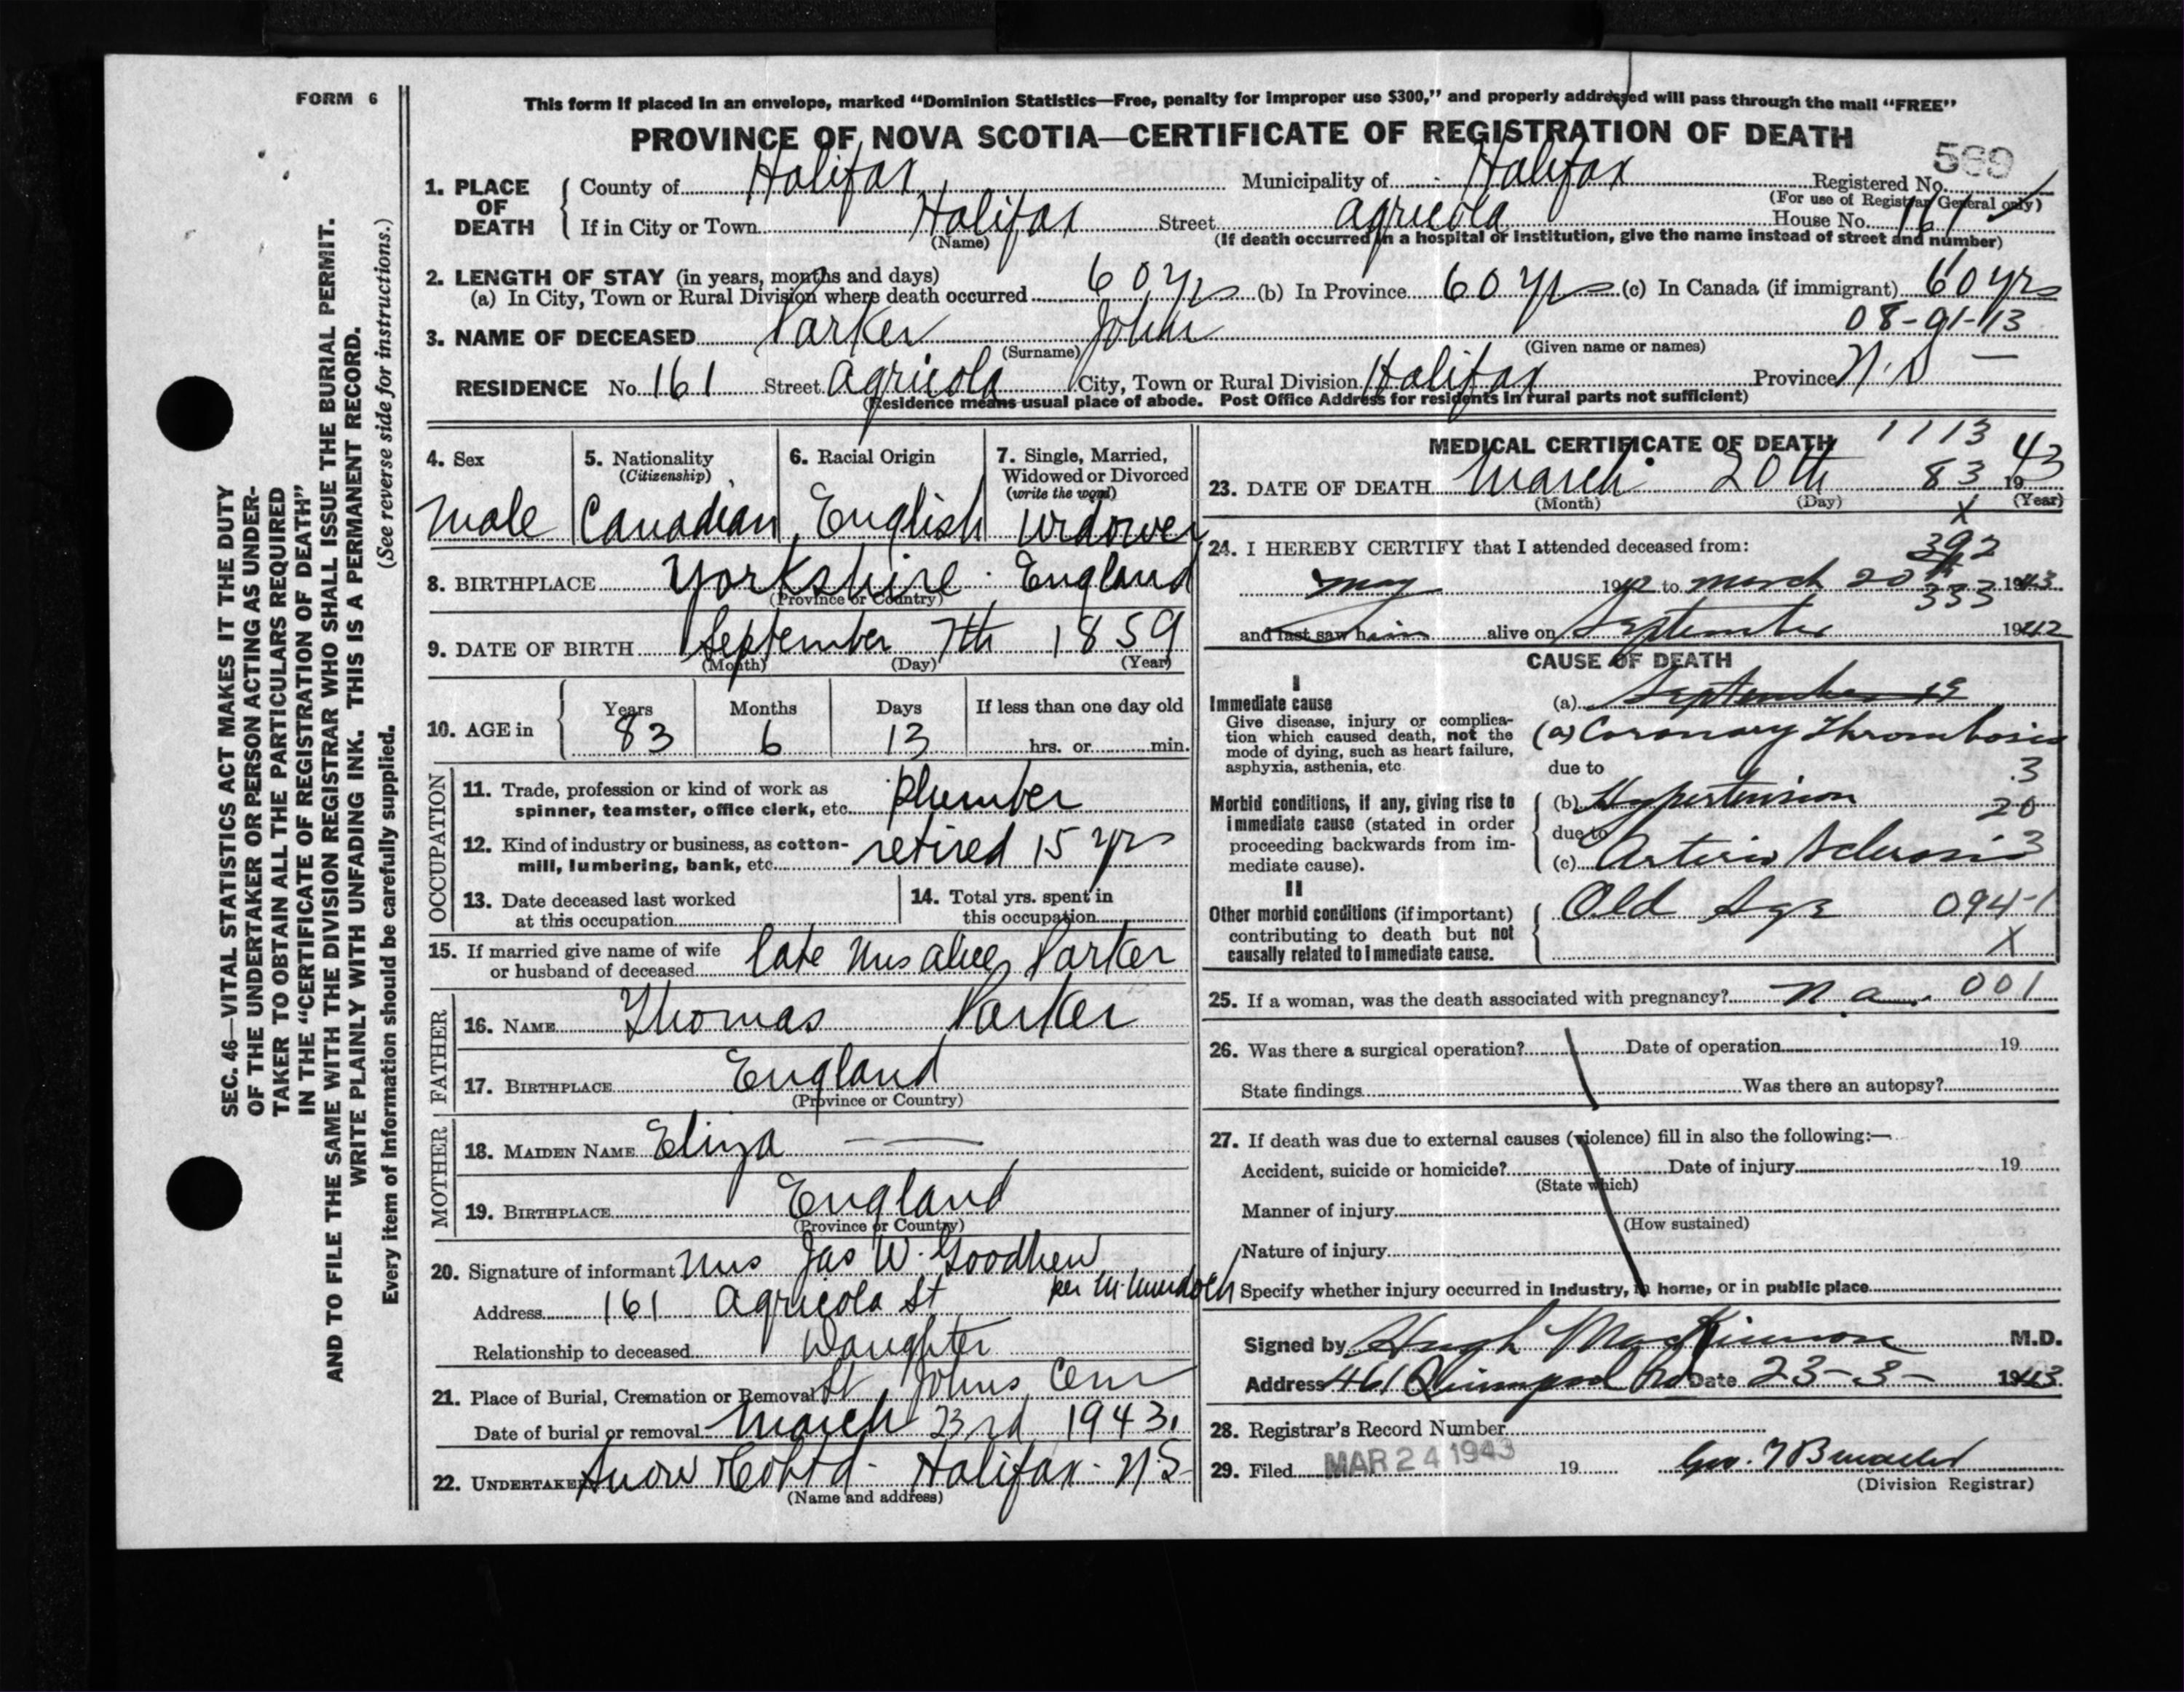 FORM 6
This form if placed in an envelope, marked “Dominion Statistics—Free, penalty for improper use $300,” and properly addressed will pass through the mail “FREE”
PROVINCE OF NOVA SCOTIA—CERTIFICATE OF REGISTRATION OF DEATH
569
1. PLACE OF DEATH County of Halifax Municipality of Halifax Registered No.
(For use of Registrar General only)
If in City or Town Halifax Street Agricola House No. 161
(Name) (If death occurred in a hospital or institution, give the name instead of street and number)
2. LENGTH OF STAY (in years, months and days)
(a) In City, Town or Rural Division where death occurred 60 yrs (b) In Province 60 yrs (c) In Canada (if immigrant) 60 yrs
08-91-13
3. NAME OF DECEASED Parker John
(Surname) (Given name or names)
RESIDENCE No. 161 Street Agricola City, Town or Rural Division Halifax Province N.S —
(Residence means usual place of abode. Post Office Address for residents in rural parts not sufficient)
SEC. 46—VITAL STATISTICS ACT MAKES IT THE DUTY
OF THE UNDERTAKER OR PERSON ACTING AS UNDER-
TAKER TO OBTAIN ALL THE PARTICULARS REQUIRED
IN THE “CERTIFICATE OF REGISTRATION OF DEATH”
AND TO FILE THE SAME WITH THE DIVISION REGISTRAR WHO SHALL ISSUE THE BURIAL PERMIT.
WRITE PLAINLY WITH UNFADING INK. THIS IS A PERMANENT RECORD.
Every item of information should be carefully supplied. (See reverse side for instructions.)
4. Sex
male
5. Nationality
(Citizenship)
Canadian
6. Racial Origin
English
7. Single, Married,
Widowed or Divorced
(write the word)
Widower
8. BIRTHPLACE Yorkshire England
(Province or Country)
9. DATE OF BIRTH September 7th 1859
(Month) (Day) (Year)
10. AGE in Years Months Days If less than one day old
83 6 13 hrs. or min.
OCCUPATION
11. Trade, profession or kind of work as
spinner, teamster, office clerk, etc. Plumber
12. Kind of industry or business, as cotton-
mill, lumbering, bank, etc. retired 15 yrs
13. Date deceased last worked
at this occupation
14. Total yrs. spent in
this occupation
15. If married give name of wife
or husband of deceased late Mrs Alice Parker
FATHER
16. NAME Thomas Parker
17. BIRTHPLACE England
(Province or Country)
MOTHER
18. MAIDEN NAME Eliza — —
19. BIRTHPLACE England
(Province or Country)
20. Signature of informant Mrs Jas W. Goodhew
per M Murdoch
Address 161 Agricola St
Relationship to deceased Daughter
21. Place of Burial, Cremation or Removal St Johns Cem
Date of burial or removal March 23rd 1943.
22. UNDERTAKER Snow & Co Ltd. Halifax. N.S
(Name and address)
MEDICAL CERTIFICATE OF DEATH 1113
23. DATE OF DEATH March 20th 83 1943
(Month) (Day) (Year)
X
24. I HEREBY CERTIFY that I attended deceased from:
392
May 1942 to March 20th 1943
333
and last saw him alive on September 1942
CAUSE OF DEATH
I
Immediate cause
Give disease, injury or complica-
tion which caused death, not the
mode of dying, such as heart failure,
asphyxia, asthenia, etc.
(a) September 19
(a) Coronary Thrombosis
due to .3
Morbid conditions, if any, giving rise to
immediate cause (stated in order
proceeding backwards from im-
mediate cause).
(b) Hypertension 20
due to
(c) Arterio Sclerosis 3
II
Other morbid conditions (if important)
contributing to death but not
causally related to immediate cause.
Old Age 094-1
X
25. If a woman, was the death associated with pregnancy? n.a. 001
26. Was there a surgical operation? Date of operation 19
State findings Was there an autopsy?
27. If death was due to external causes (violence) fill in also the following:—
Accident, suicide or homicide? Date of injury 19
(State which)
Manner of injury
(How sustained)
Nature of injury
Specify whether injury occurred in Industry, in home, or in public place
Signed by Hugh MacKinnon M.D.
Address 461 Quinpool Rd Date 23-3- 1943
28. Registrar’s Record Number
29. Filed MAR 24 1943 19
(Division Registrar)